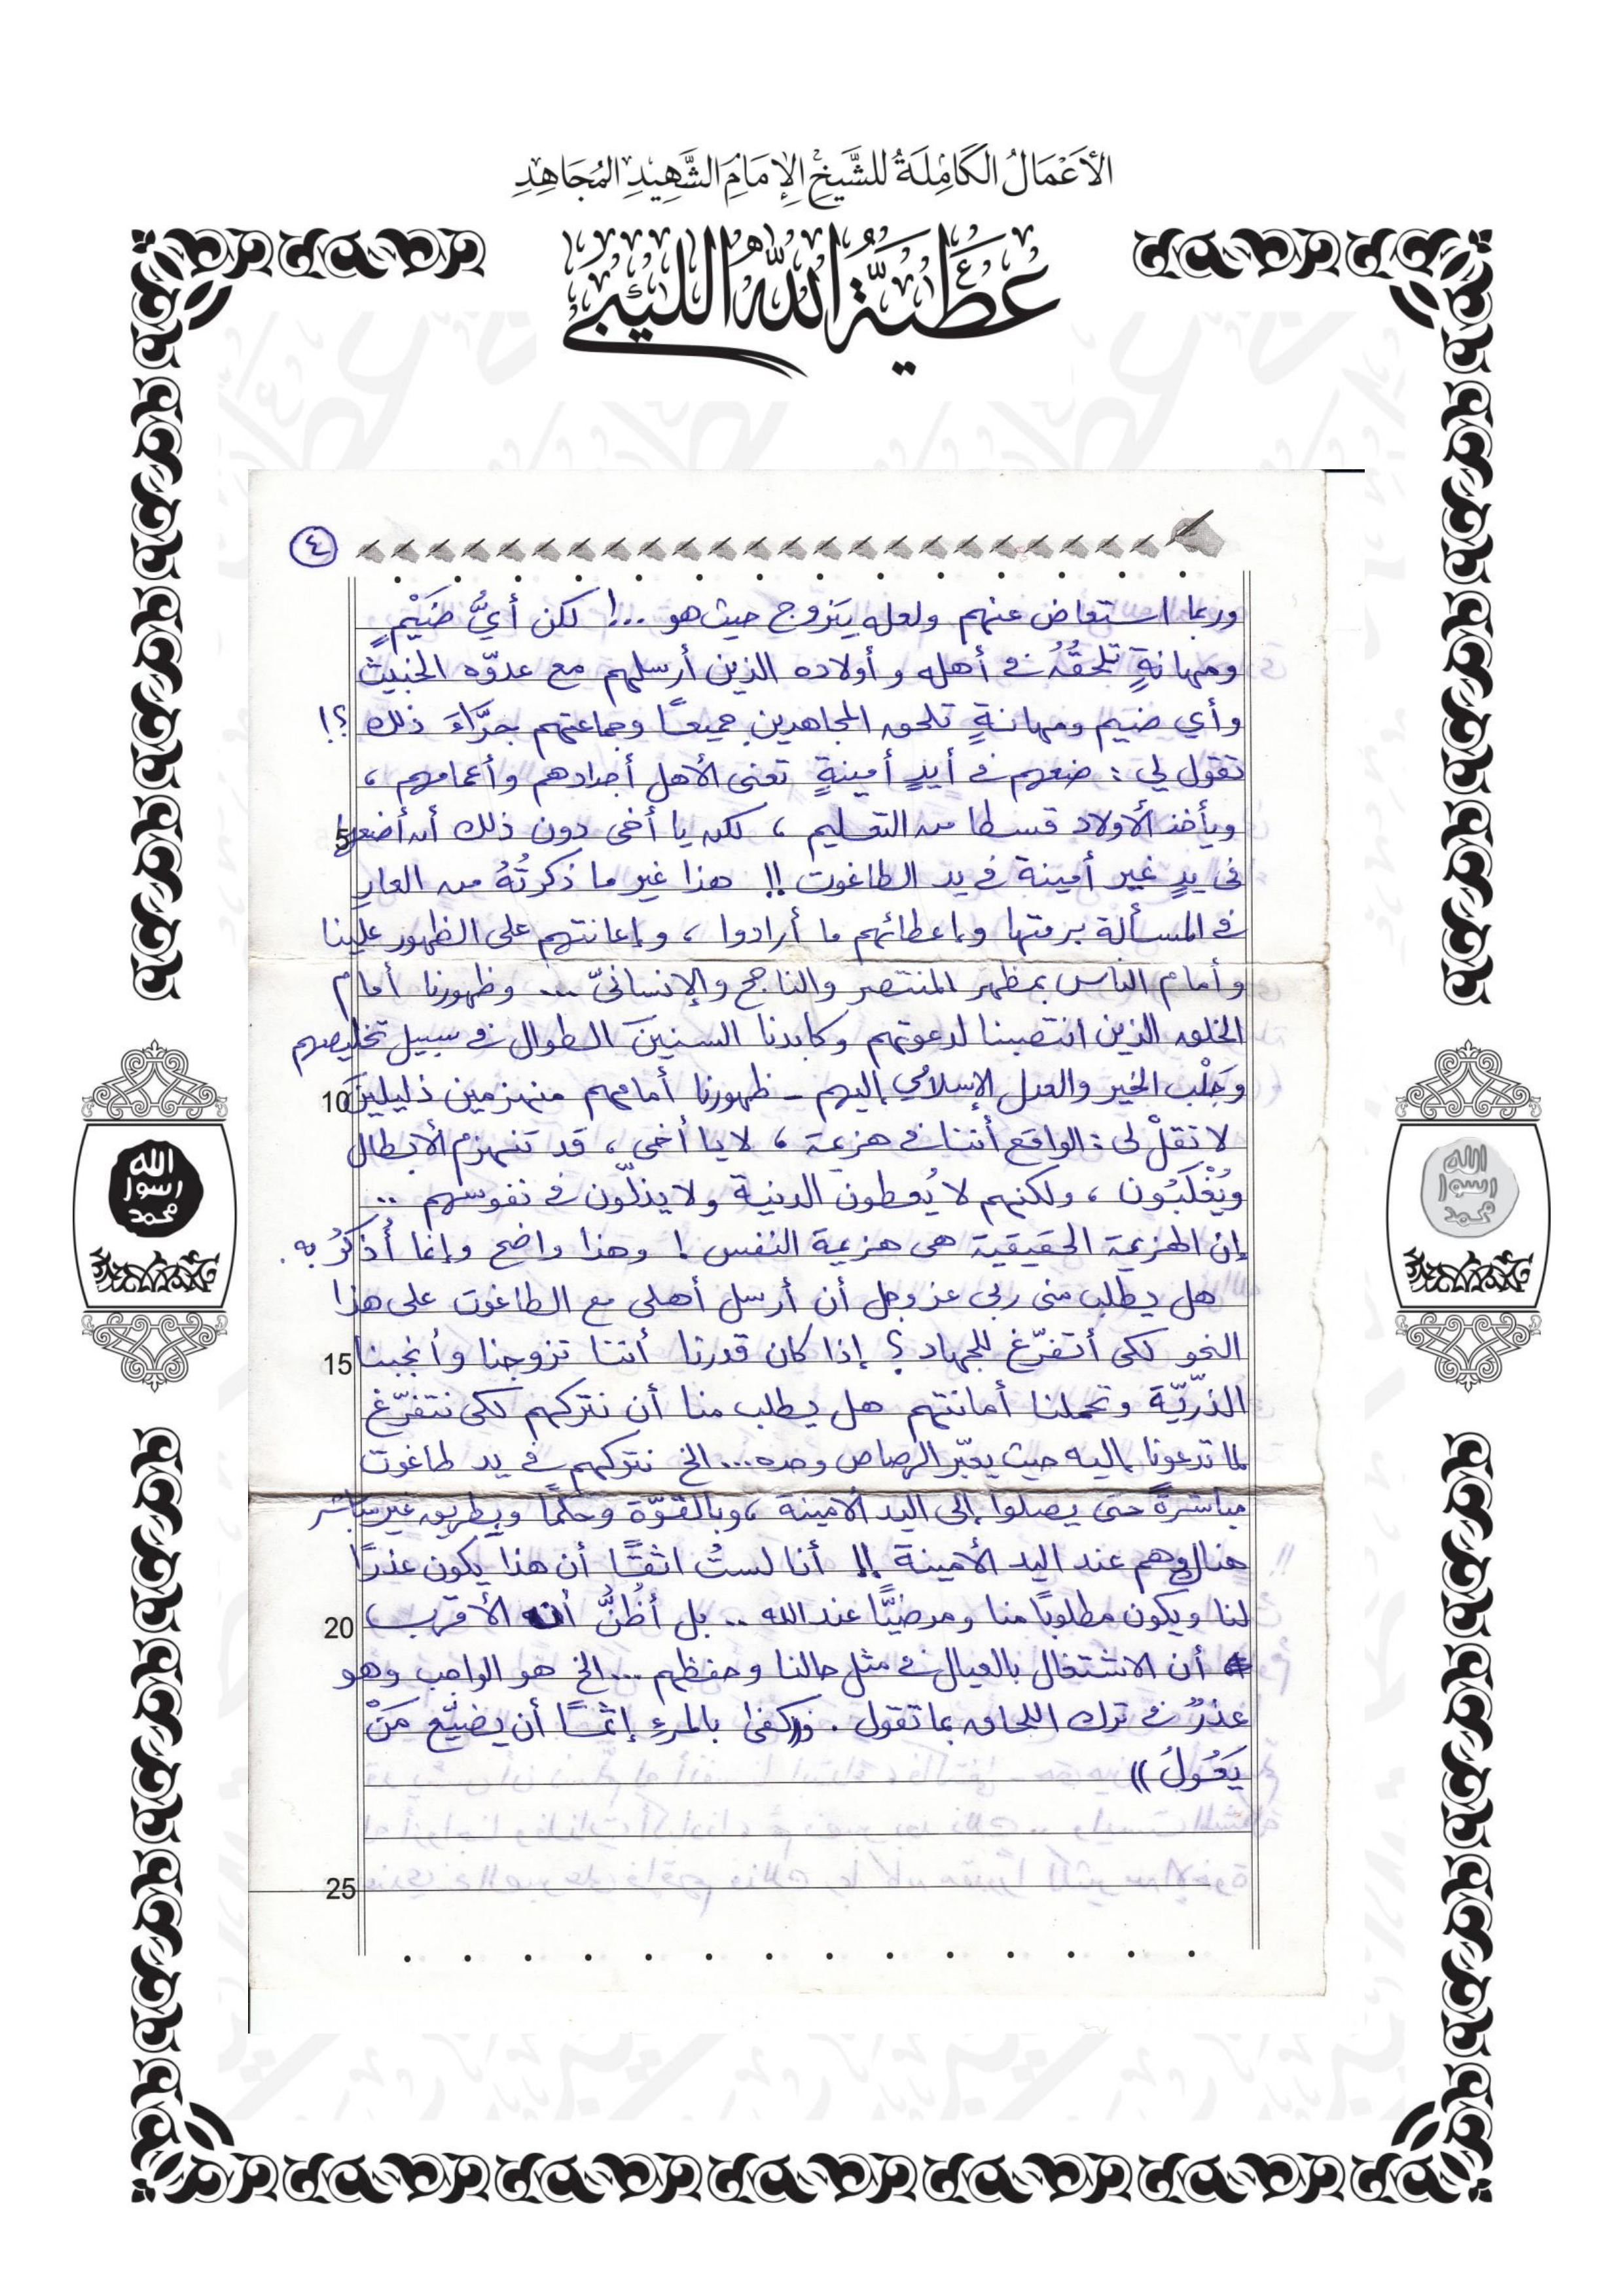 الأَعْمَالُ الكَامِلَةُ للشَّيخِ الإِمَامِ الشَّهِيدِ المُجَاهِدِ
عَطِيَّةُ اللهِ اللِّيبِيّ
٤
وربما استعاض عنهم ولعله يتزوج حيث هو ...! لكن أيُّ ضَيْمٍ
ومهانةٍ تلحقُهُ في أهله وأولاده الذين أرسلهم مع عدوّه الخبيث
وأي ضيم ومهانةٍ تلحق المجاهدين جميعًا وجماعتهم جرَّاءَ ذلك ؟!
تقول لي : ضعهم في أيدٍ أمينةٍ تعني الأهل أجدادهم وأعمامهم ،
5 ويأخذ الأولاد قسطا من التعليم ، لكن يا أخي دون ذلك أن أضعها
في يدٍ غير أمينة في يد الطاغوت !! هذا غير ما ذكرتُهُ من العار
في المسألة برمتها وإعطائهم ما أرادوا ، وإعانتهم على الظهور علينا
وأمام الناس بمظهر المنتصر والناجح والإنسانيّ ... وظهورنا أمام
الخلق الذين انتصبنا لدعوتهم وكابدنا السنينَ الطوال في سبيل تخليصهم
10 وجَلْب الخير والعدل الإسلامي إليهم - ظهورنا أمامهم منهزمين ذليلين
لا تقلْ لي : الواقع أننا في هزيمة ، لا يا أخي ، قد تنهزم الأبطال
ويُغْلَبُون ، ولكنهم لا يُعطون الدنية ولا يذلّون في نفوسهم ..
إن الهزيمة الحقيقية هي هزيمة النفس ! وهذا واضح وإنما أُذكّرُ به .
هل يطلب مني ربي عز وجل أن أرسل أهلي مع الطاغوت على هذا
15 النحو لكي أتفرّغ للجهاد ؟ إذا كان قدرنا أننا تزوجنا وأنجبنا
الذّرّيّةَ وتحملنا أمانتهم هل يطلب منا أن نتركهم لكي نتفرّغ
لما تدعونا إليه حيث يعبّر الرصاص وحده... الخ نتركهم في يد طاغوت
مباشرةً حتى يصلوا إلى اليد الأمينة ، وبالقوّة وحكمًا وبطريق غير مباشر
وهم عند اليد الأمينة !! أنا لستُ أثقًا أن هذا يكون عذرًا
20 لنا ويكون مطلوبًا منا ومرضيًّا عند الله .. بل أظُنُّ أنه الأقرب ،
أن الاشتغال بالعيال في مثل حالنا وحفظهم ... الخ هو الواجب وهو
عذرٌ في ترك اللحاق بما تقول . و((كفى بالمرء إثمًا أن يضيّع مَنْ
يَعُولُ ))
25
الله
رسول
محمد
الله
رسول
محمد